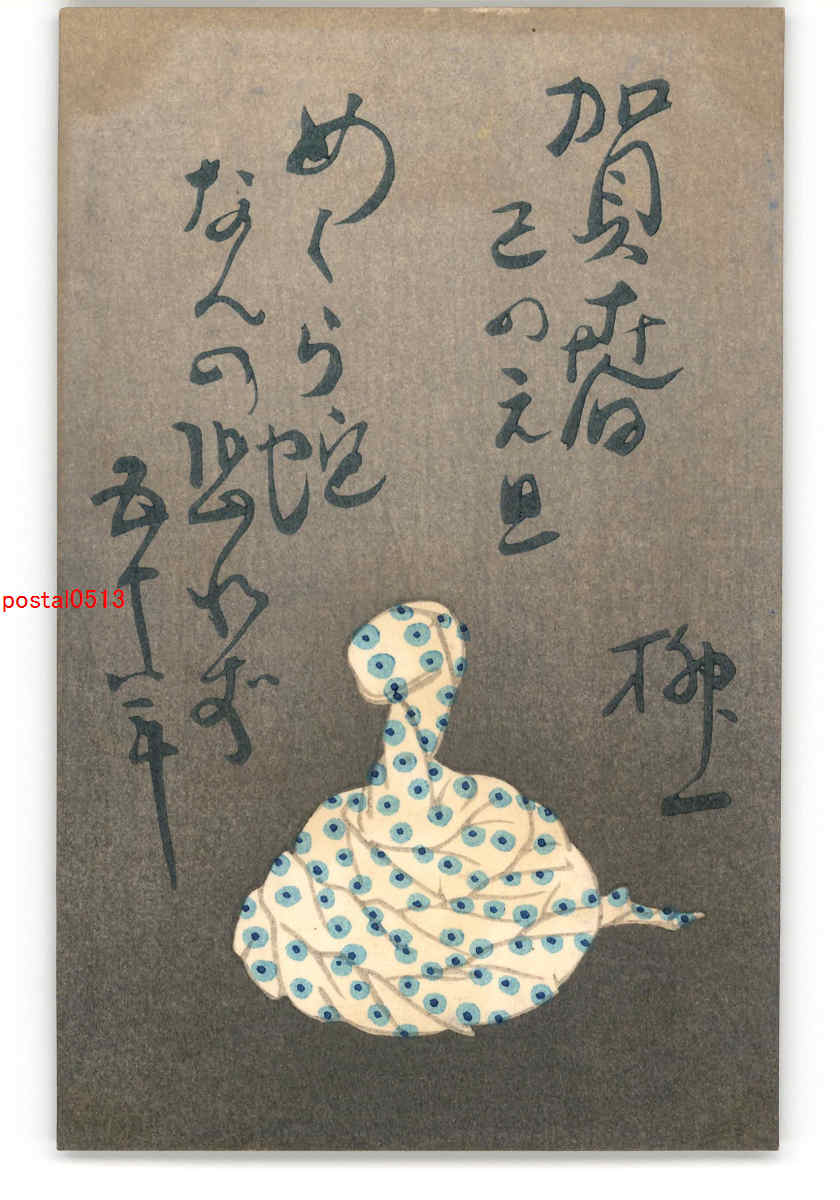 賀春
巳の元旦
柳一
めくら蛇
なんの恐れず
五十八年
postal0513